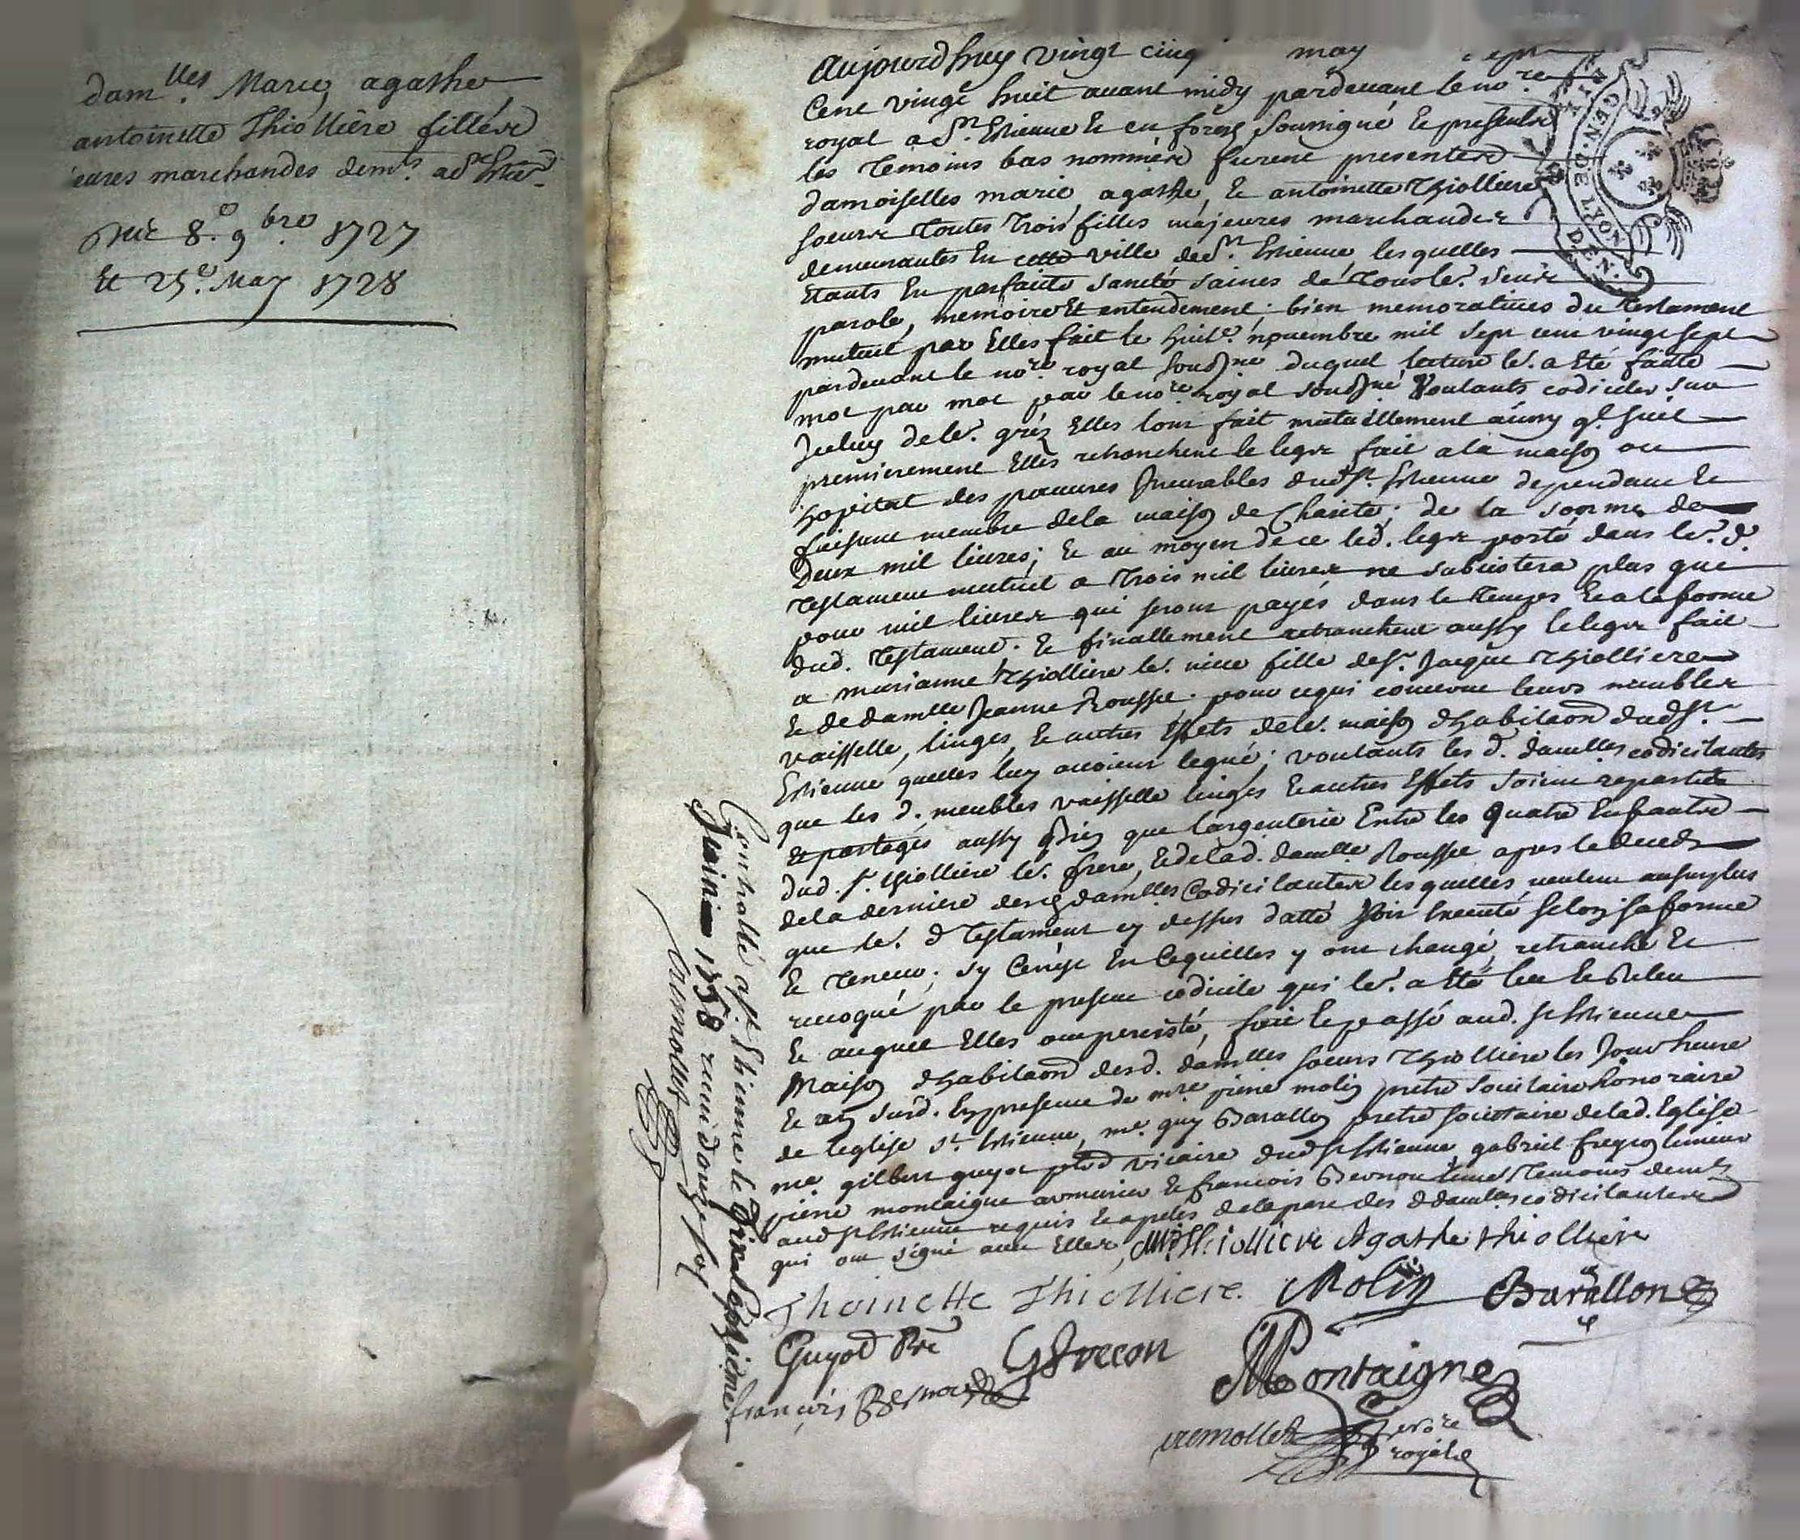 dam.lles Marie, agathe
antoinette Thiollière filles
marchandes dem.ts a St Estne
8.e 9bre 1727
Et 25.e May 1728
aujourdhuy vingt cinq may sept
Cent vingt huit avant midy pardevant le no.re
royal a St. Estienne Et en forez soussigné Et présents
les temoins bas nommés furent presentes
damoiselles marie, agathe, Et antoinette Thiolliere
soeurs toutes trois filles majeures marchandes
demeurantes En cette ville de St. Estienne lesquelles
Etants En parfaite santé saines de tous le.s sens
parole, memoire Et entendement; bien memoratives du testament
mutuel par Elles fait le huit.e novembre mil sept cent vingt sept
pardevant le no.re royal souss.né duquel lecture le.r a Eté faite
mot par mot par le no.re royal souss.né Voulants codiciler sur
Iceluy de le.r gréz Elles l'ont fait mutuellement ainsy q.e suit
premierement Elles retranchent le legs fait a la maison ou
hopital des pauvres Incurables dud St. Estienne dependant Et
faisant membre de la maison de Charité; de la somme de
Deux mil livres; Et au moyen de ce led. legs porté dans le.r d.
testament mutuel a trois mil livres ne subsistera plus que
pour mil livres qui seront payés dans le temps Et a la forme
dud. testament. Et finallement retranchent aussy le legs fait
a marianne thiolliere le.r niece fille de sr. Jacque thiolliere
Et de damlle Jeanne Roussee; pour ce qui concerne leurs meubles
vaisselle, linges, Et autres Effets de le.r maison d'habitaon dud St.
Estienne quelles luy avoient legué; voulants les d. damlles codicilantes
que les d. meubles vaisselle linges Et autres Effets soient repartis
Et partagés aussy bien que l'argenterie Entre les quatre Enfants
dud. sr. thiolliere le.r frere, Et de lad. damlle Roussee apres le deceds
de la derniere desd damlles Codicilantes lesquelles veulent au surplus
que le.r d testament cy dessus datté soit Executé selon sa forme
Et teneur; sy Cen'est En ce quelles y ont changé, retranché Et
revoqué par le present codicile qui le.r a Eté leu Et releu
Et auquel Elles ont persisté, fait Et passé aud. St Estienne
Maison d'habitaon desd. damlles soeurs Thiolliere les Jour heure
Et an susd. En presence de m.re pierre molin pretre societaire honoraire
de l'eglise St. Estienne, me. guy Barallon pretre societaire de lad. Eglise
me gilbert guyot vicaire dud St Estienne, gabriel freçon
pierre montaigne armurier Et francois Bernou temoins dem.ts
aud St Estienne requis Et apelés de la part des d damlles codicilantes
qui ont signé avec Elles, M Thiolliere Agathe thiolliere
Thoinette Thiolliere. Molin Barallon
Guyot Pre G frecon Montaigne
françois Bernou
no.re
royal
Controllé a St. Etienne le
1728 receu douze sols
GEN. DE LYON
D. EN.